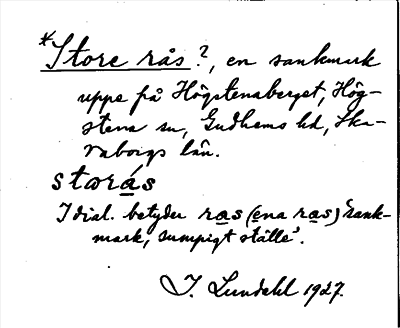 *Store rås?, en sankmark
uppe på Högstenaberget, Hög-
stena sn, Gudhems hd, Ska-
raborgs län.
storás
I dial. betyder ras (ena ras) 'sank-
mark, sumpigt ställe'.
I. Lundahl 1927.